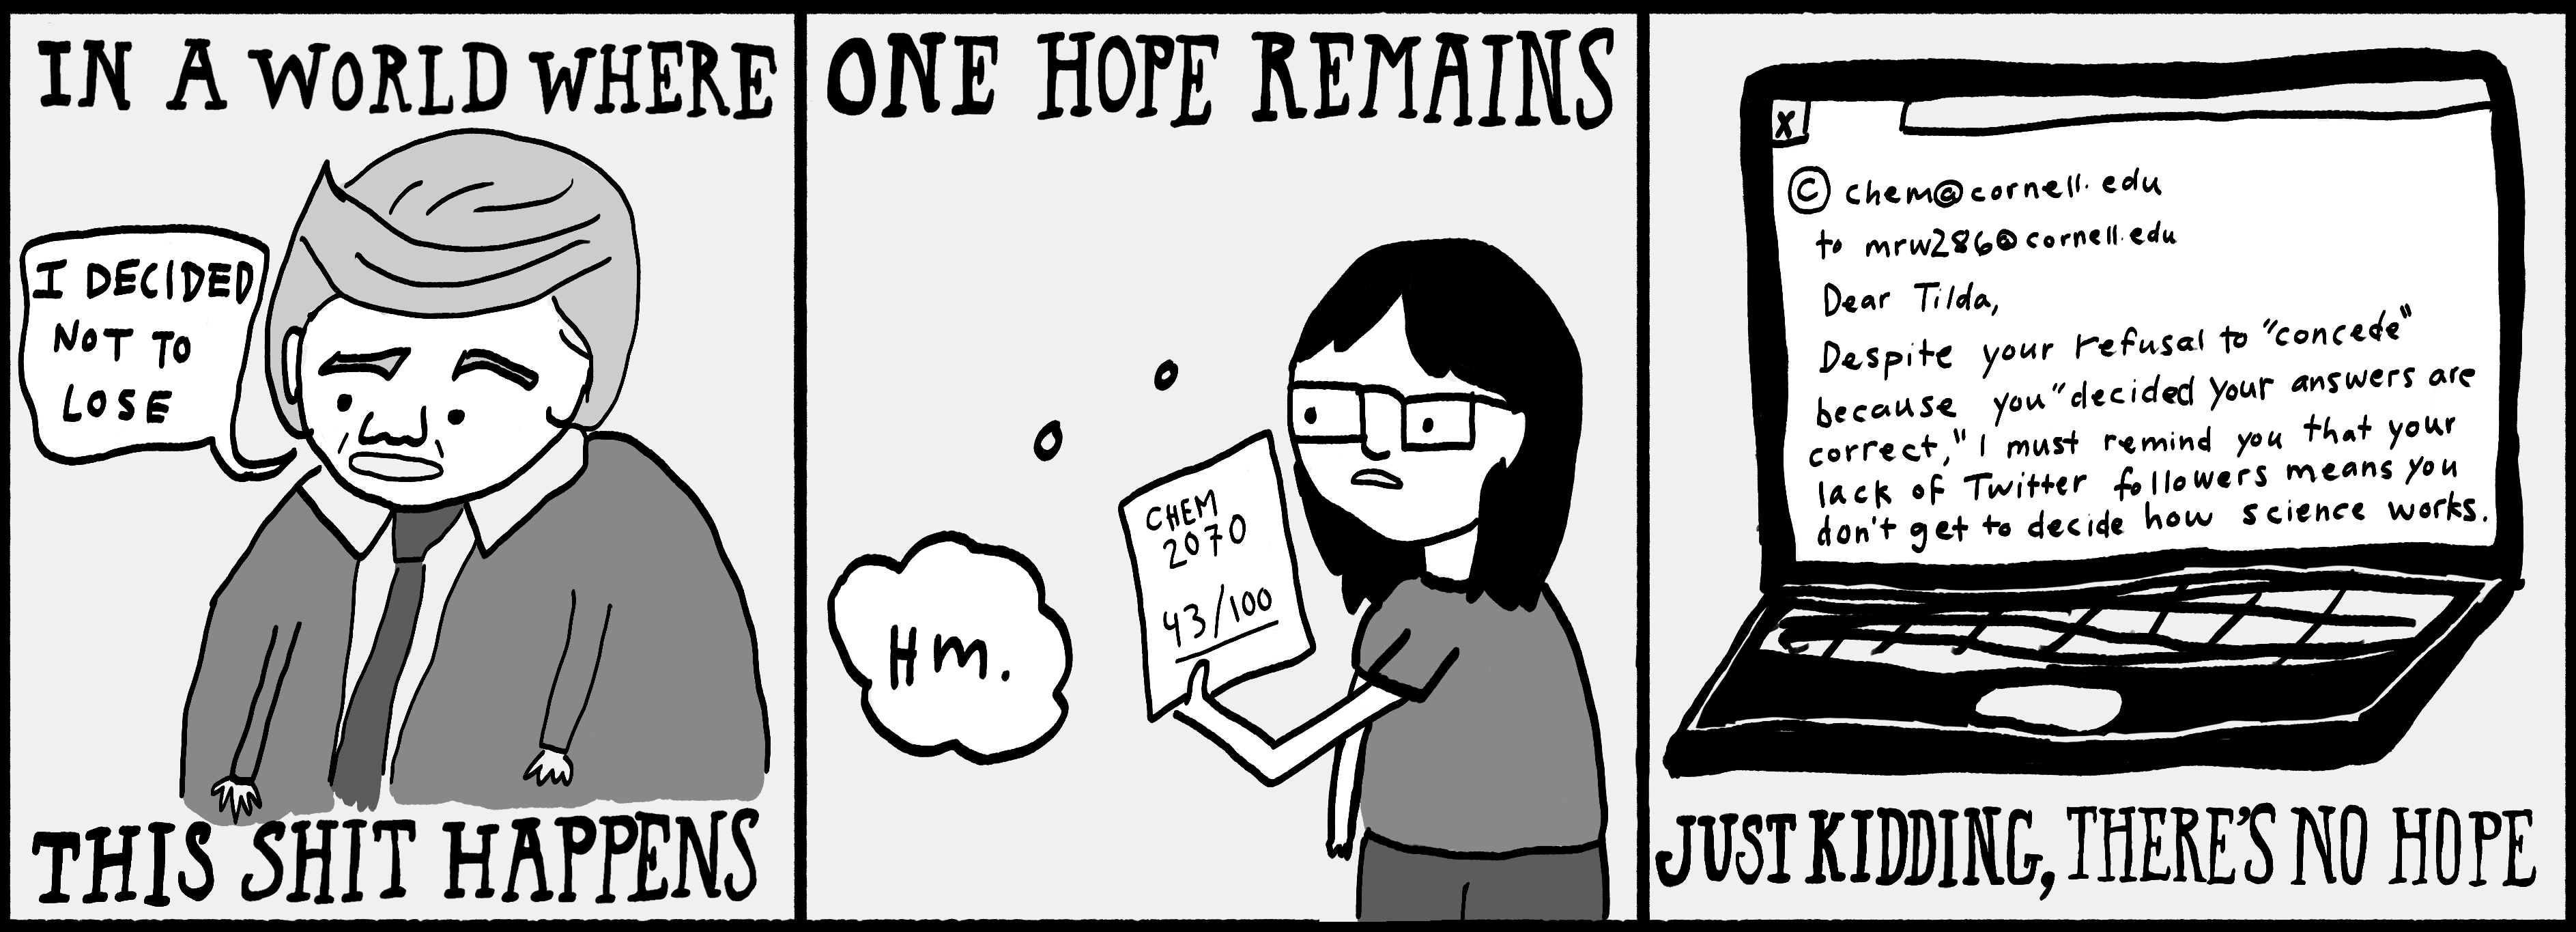 IN A WORLD WHERE
I DECIDED
NOT TO
LOSE
THIS SHIT HAPPENS
ONE HOPE REMAINS
CHEM
2070
43/100
Hm.
X
© chem@cornell.edu
to mrw286@cornell.edu
Dear Tilda,
Despite your refusal to "concede"
because you "decided your answers are
correct," I must remind you that your
lack of Twitter followers means you
don't get to decide how science works.
JUST KIDDING, THERE'S NO HOPE